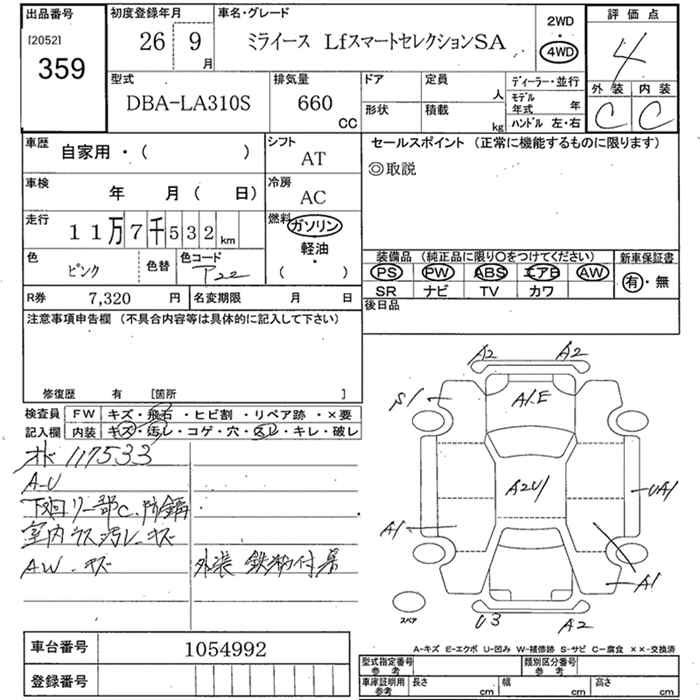 出品番号
[2052]
359
初度登録年月
26 9
月
車名・グレード
ミライース LfスマートセレクションSA
2WD
・
4WD
評価点
4
外装 内装
C C
型式
DBA-LA310S
排気量
660
CC
ドア
定員
人
形状
積載
kg
ディーラー・並行
モデル年式 年
ハンドル 左・右
車歴
自家用・( )
シフト
AT
車検
年 月( 日)
冷房
AC
走行
11万7千532km
燃料
ガソリン
軽油
・
( )
色
ピンク
色替
色コード
P22
R券 7,320 円
名変期限 月 日
セールスポイント (正常に機能するものに限ります)
◎取説
装備品 (純正品に限り〇をつけてください)
PS PW ABS エアB AW
SR ナビ TV カワ
新車保証書
有・無
後日品
注意事項申告欄 (不具合内容等は具体的に記入して下さい)
修復歴 有 [箇所 ]
検査員
記入欄
FW キズ・飛石・ヒビ割・リペア跡・×要
内装 キズ・汚レ・コゲ・穴・スレ・キレ・破レ
117533
A-U
下廻リ一部C.防錆
室内ウス汚レ.キズ
AW.キズ
外装 鉄粉付着
A2 A2
S1
A1.E
A2U1
UA1
A1
A1
U3 A2
スペア
A-キズ E-エクボ U-凹み W-補修跡 S-サビ C-腐食 ××-交換済
車台番号 1054992
登録番号
型式指定番号
参考
類別区分番号
参考
車庫証明用
参考
長さ cm 幅 cm 高さ cm